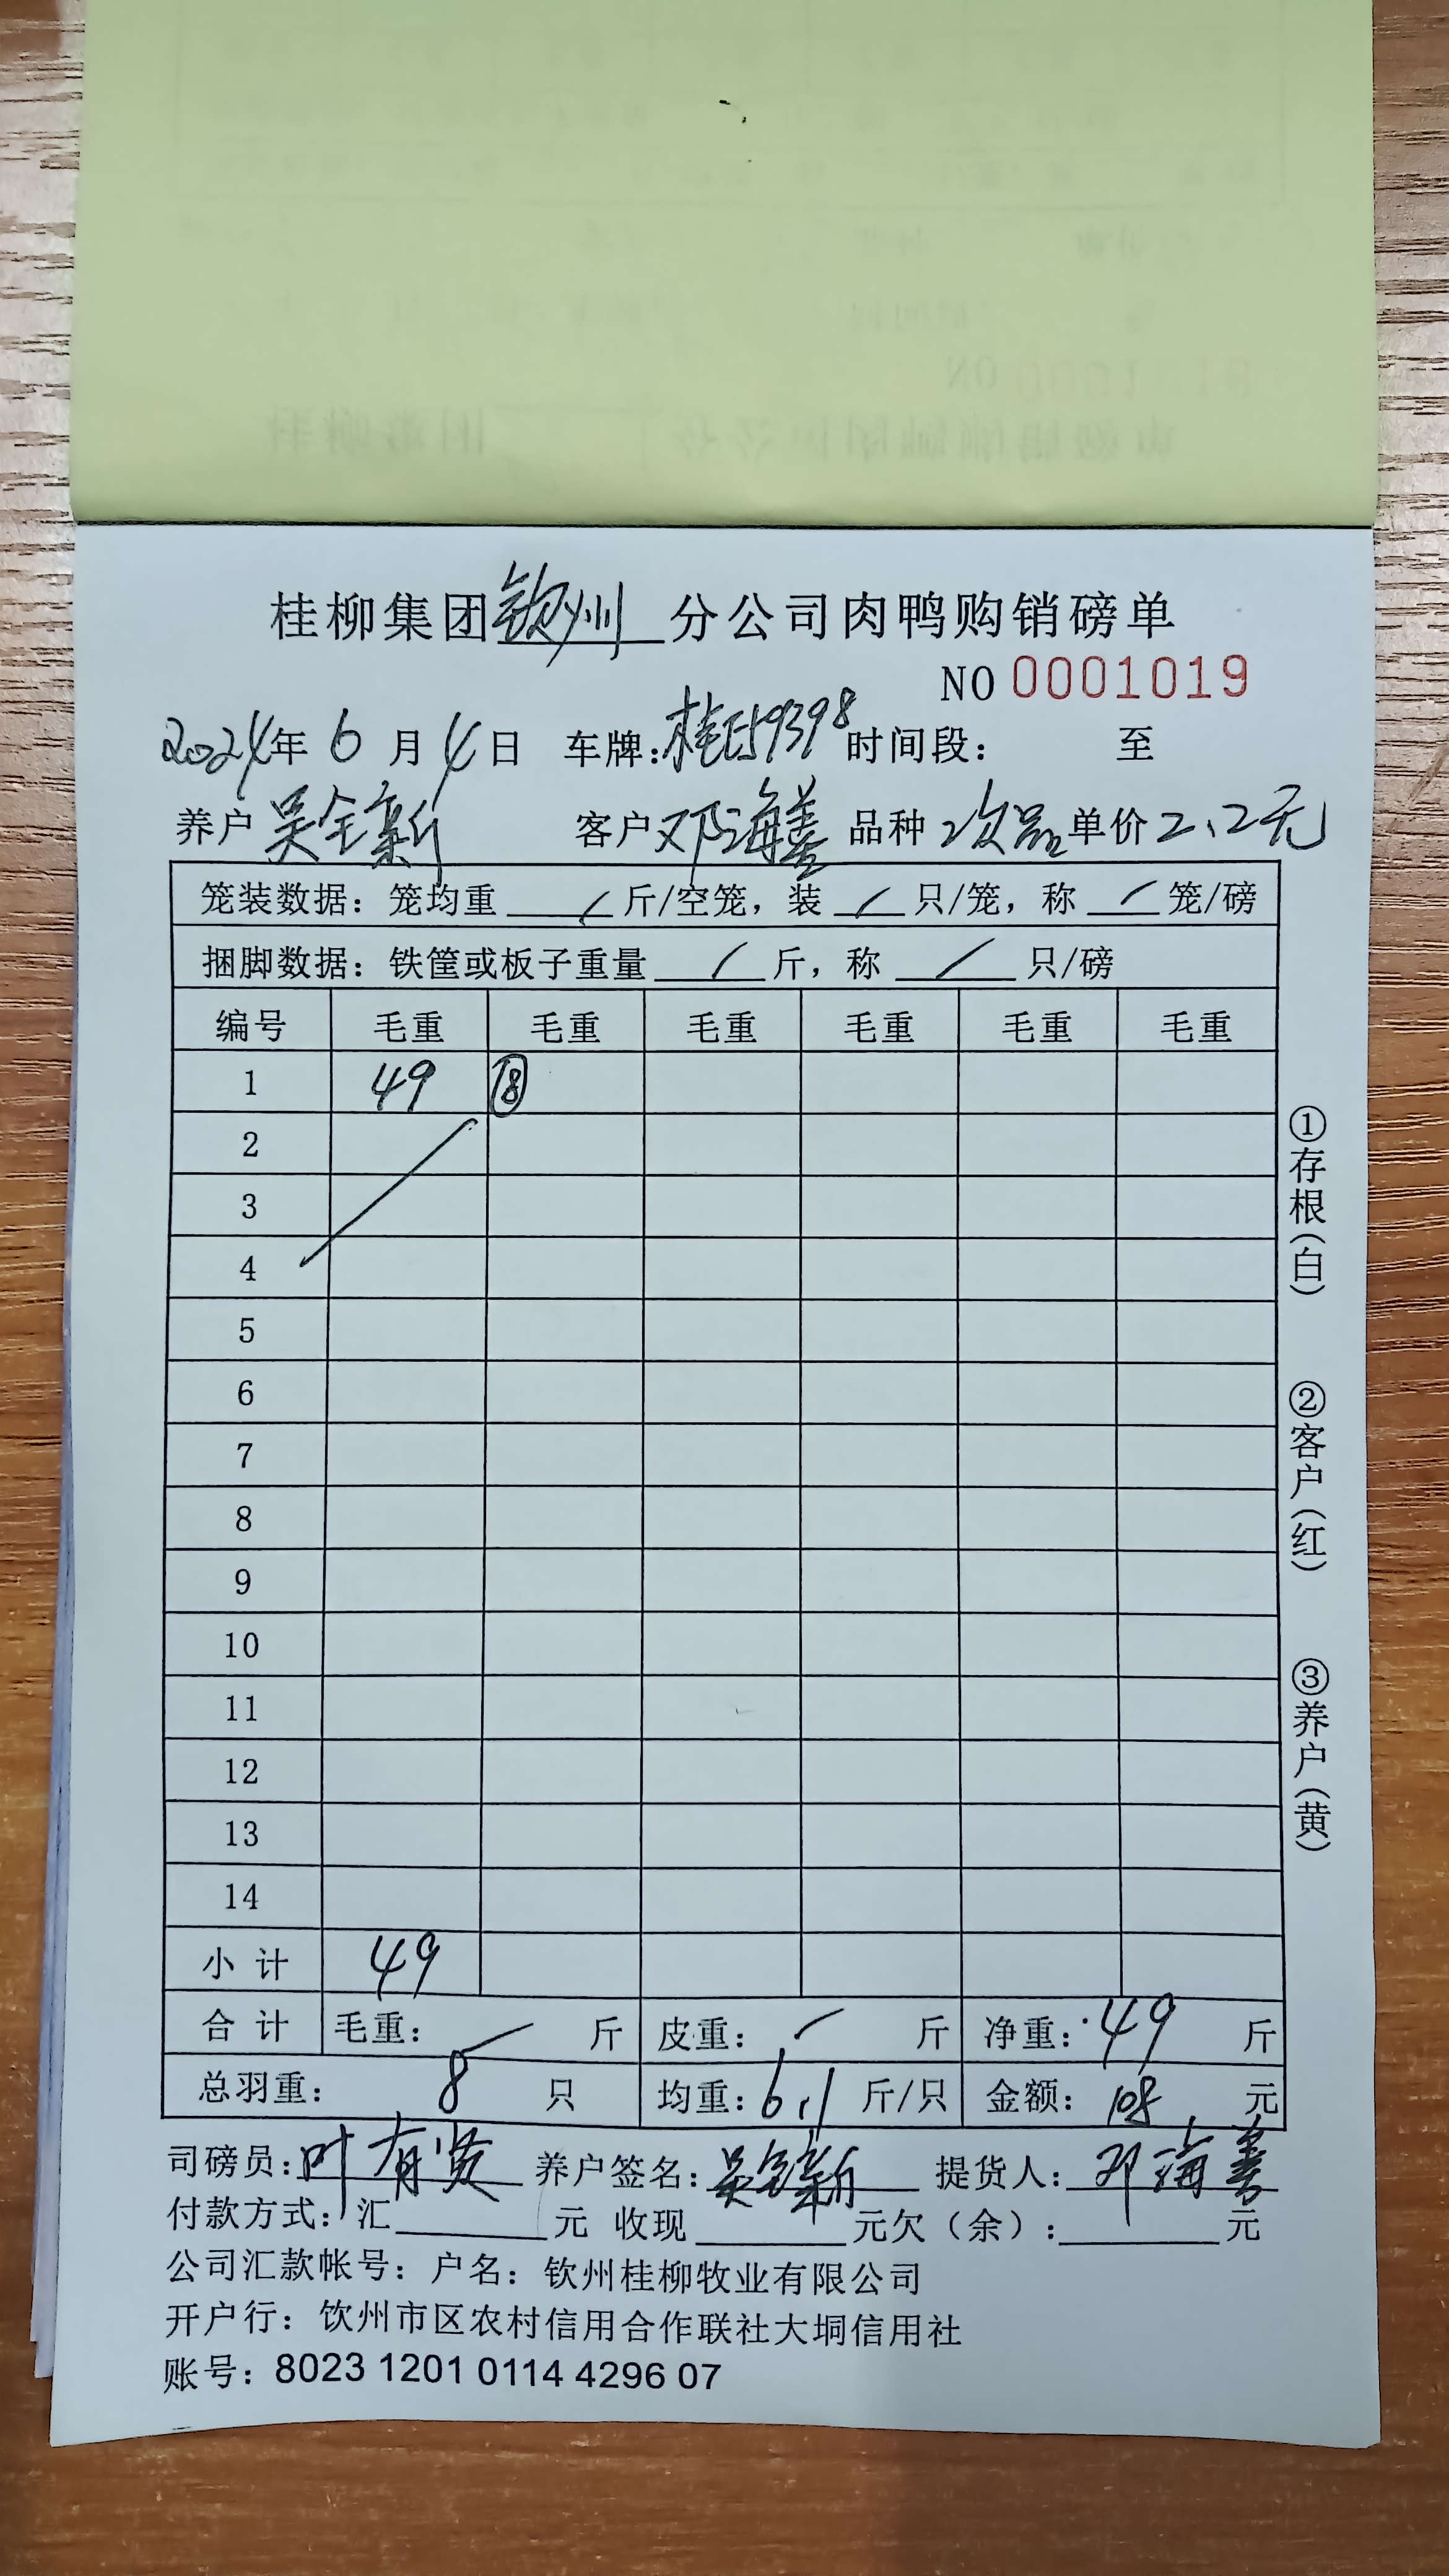 桂柳集团钦州分公司肉鸭购销磅单
NO 0001019
2024年 6 月 4 日 车牌: 时间段: 至
养户 吴全新 客户 邓海善 品种 次品 单价 2.2元
笼装数据: 笼均重 / 斤/空笼, 装 / 只/笼, 称 / 笼/磅
捆脚数据: 铁筐或板子重量 / 斤, 称 / 只/磅
编号 毛重 毛重 毛重 毛重 毛重 毛重
1 49 ⑧
2
3
4
5
6
7
8
9
10
11
12
13
14
小计 49
合计 毛重: / 斤 皮重: / 斤 净重: 49 斤
总羽重: 8 只 均重: 6.1 斤/只 金额: 108 元
司磅员: 叶有贤 养户签名: 吴全新 提货人: 邓海善
付款方式: 汇 元 收现 元欠(余): 元
公司汇款帐号: 户名: 钦州桂柳牧业有限公司
开户行: 钦州市区农村信用合作联社大垌信用社
账号: 8023 1201 0114 4296 07
①存根(白)
②客户(红)
③养户(黄)